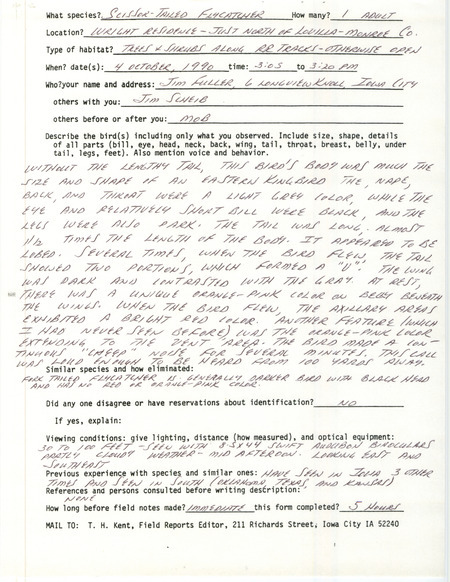 What species? Scissor-Tailed Flycatcher How many? 1 Adult
Location? Wright Residence - Just North of Lovilla - Monroe Co.
Type of habitat? Trees & Shrubs Along RR Tracks - Otherwise Open
When? date(s): 4 October, 1990 time: 3:05 to 3:20 PM
Who?your name and address: Jim Fuller, 6 Longview Knoll, Iowa City
others with you: Jim Scheib
others before or after you: Mob
Describe the bird(s) including only what you observed. Include size, shape, details
of all parts (bill, eye, head, neck, back, wing, tail, throat, breast, belly, under
tail, legs, feet). Also mention voice and behavior.
Without the lengthy tail, this bird's body was much the
size and shape of an Eastern Kingbird. The nape,
back, and throat were a light grey color, while the
eye and relatively short bill were black, and the
legs were also dark. The tail was long, almost
1 1/2 times the length of the body. It appeared to be
lobed. Several times, when the bird flew, the tail
showed two portions, which formed a "V". The wing
was dark and contrasted with the gray. At rest,
there was a unique orange-pink color on beneath
the wings. When the bird flew, the axillary areas
exhibited a bright red color. Another feature (which
I had never seen before) was the orange-pink color
extending to the vent area. The bird made a con-
tinuous "cheep" noise for several minutes. This call
was loud enough to be heard from 100 yards away.
Similar species and how eliminated:
Fork tailed Flycatcher is generally darker bird with black head
and has no red or orange-pink color.
Did any one disagree or have reservations about identification? No
If yes, explain:
Viewing conditions: give lighting, distance (how measured), and optical equipment:
30 to 100 feet - seen with 8.5x44 Swift Audubon binoculars
Partly cloudy weather - mid afternoon. Looking east and
southeast
Previous experience with species and similar ones: Have seen in Iowa 3 other
times and seen in South (Oklahoma, Texas, and Kansas)
References and persons consulted before writing description:
None
How long before field notes made? Immediate this form completed? 5 Hours
MAIL TO: T. H. Kent, Field Reports Editor, 211 Richards Street, Iowa City IA 52240